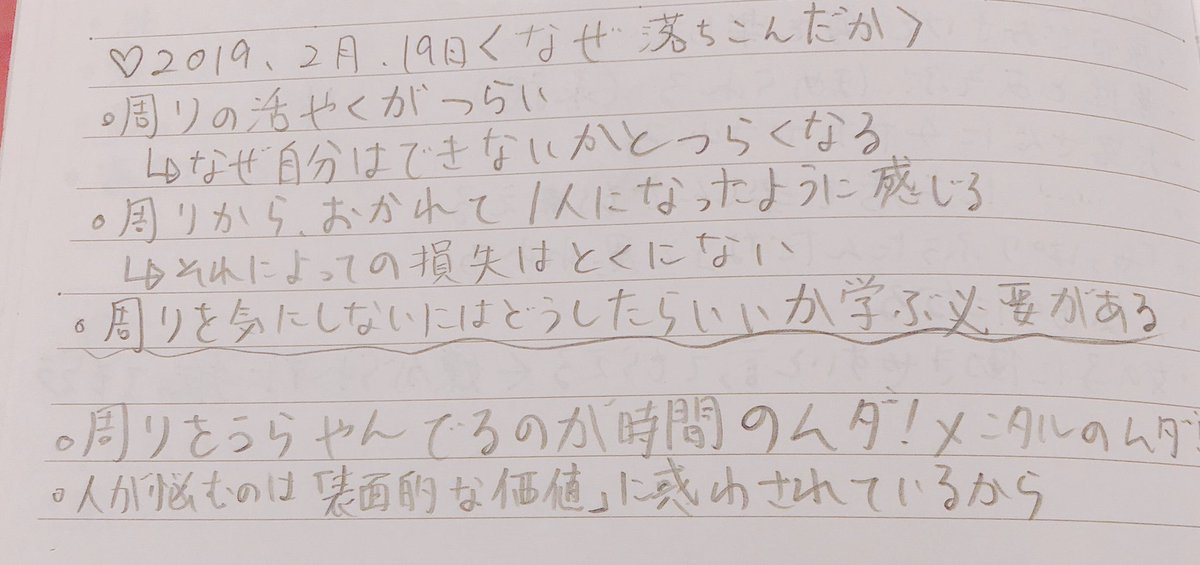 ♡2019、2月.19日〈なぜ落ちこんだか〉
。周りの活やくがつらい
↳なぜ自分はできないかとつらくなる
。周りから、おかれて1人になったように感じる
↳それによっての損失はとくにない
。周りを気にしないにはどうしたらいいか学ぶ必要がある
。周りをうらやんでるのが時間のムダ!メンタルのムダ!
。人が悩むのは「表面的な価値」に惑わされているから